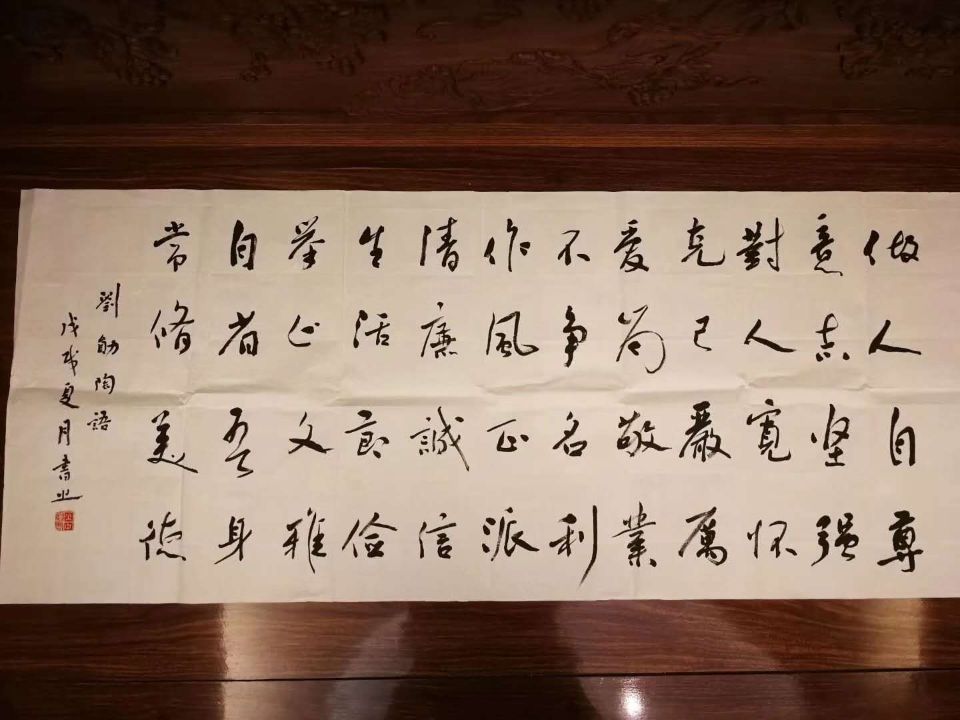 做人自尊
意志坚强
對人寬怀
克己嚴厲
爱岗敬業
不争名利
作風正派
清廉誠信
生活節俭
举止文雅
自省吾身
常修美德
劉陶語
戊戌夏月書